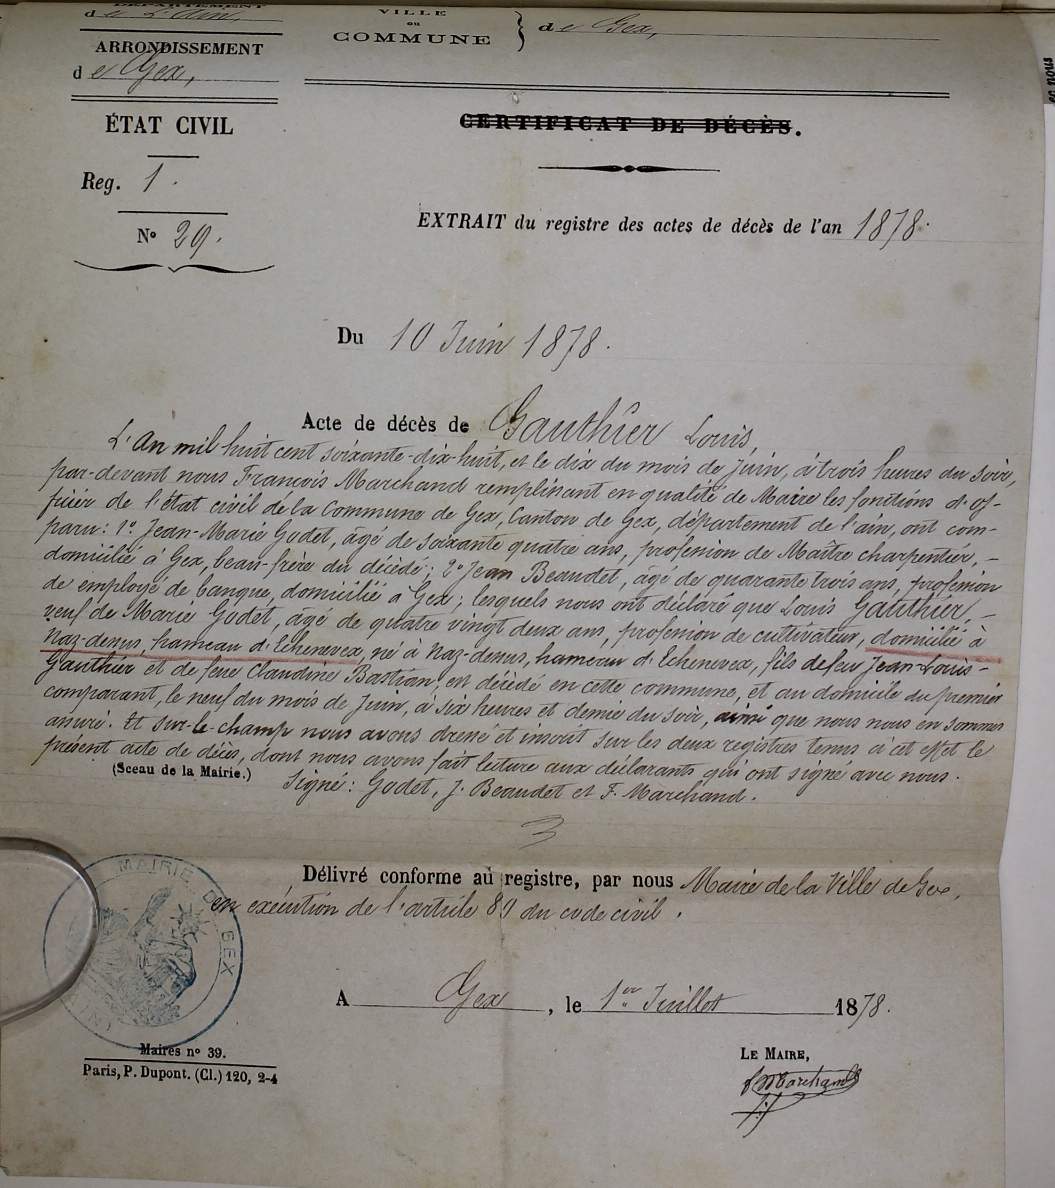 DÉPARTEMENT
de L'Ain,
ARRONDISSEMENT
de Gex,
VILLE
ou
COMMUNE
de Gex,
ÉTAT CIVIL
Reg. 1.
N° 29.
CERTIFICAT DE DÉCÈS.
EXTRAIT du registre des actes de décès de l'an 1878.
Du 10 Juin 1878.
Acte de décès de Gauthier Louis,
L'An mil huit cent soixante-dix-huit, et le dix du mois de Juin, à trois heures du soir,
par-devant nous François Marchand remplissant en qualité de Maire les fonctions d'of-
ficier de l'état civil de la Commune de Gex, Canton de Gex, département de l'ain, ont com-
paru: 1° Jean-Marie Godet, âgé de soixante quatre ans, profession de Maître charpentier, -
domicilié à Gex, beau-frère du décédé; 2° Jean Beaudet, âgé de quarante trois ans, profession
de employé de banque, domicilié à Gex; lesquels nous ont déclaré que Louis Gauthier, -
veuf de Marie Godet, âgé de quatre vingt deux ans, profession de cultivateur, domicilié à
Naz-dessus, hameau d'Echenevex, né à Naz-dessus, hameau d'Echenevex, fils de feu Jean-Louis-
Gauthier et de feue Claudine Bastian, est décédé en cette commune, et au domicile du premier
comparant, le neuf du mois de Juin, à six heures et demie du soir, ainsi que nous nous en sommes
assuré. Et sur-le-champ nous avons dressé et inscrit sur les deux registres tenus à cet effet le
présent acte de décès, dont nous avons fait lecture aux déclarants qui ont signé avec nous.
(Sceau de la Mairie.)
Signé: Godet, J. Beaudet et F. Marchand.
3
Délivré conforme au registre, par nous Maire de la Ville de Gex,
en exécution de l'article 89 du code civil.
MAIRIE DE GEX
(AIN)
A Gex, le 1er Juillet 1878.
Maires n° 39.
Paris, P. Dupont. (Cl.) 120, 2-4
LE MAIRE,
F Marchand